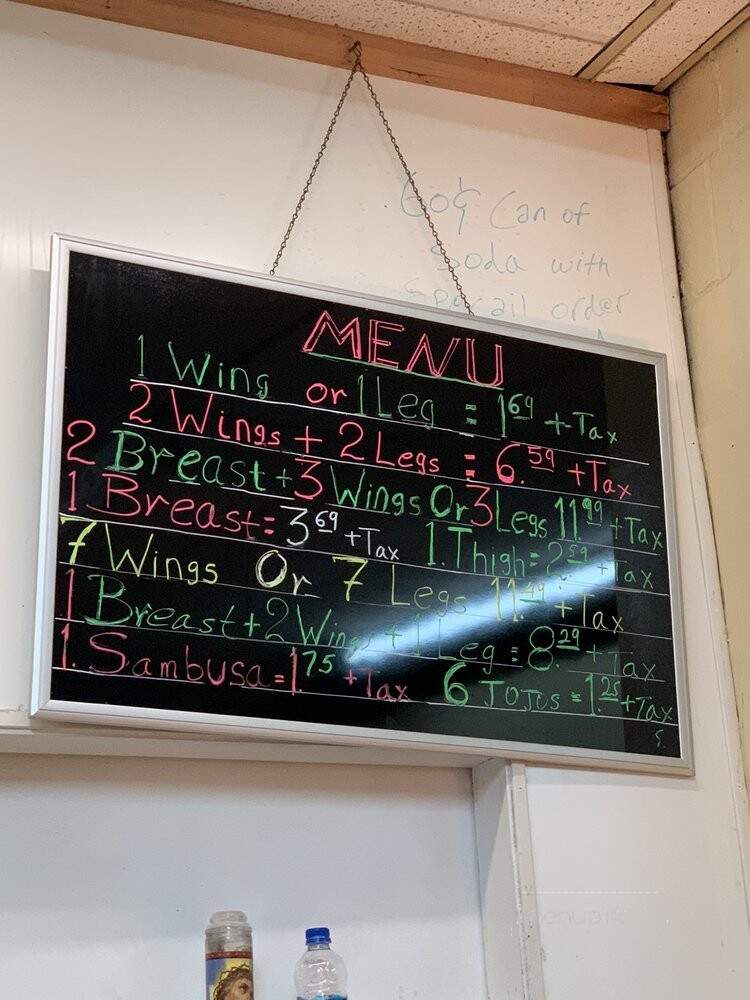 60¢ Can of
Soda with
order
MENU
1 Wing or 1 Leg = 1 69 + Tax
2 Wings + 2 Legs = 6. 59 + Tax
2 Breast + 3 Wings Or 3 Legs 11 99 + Tax
1 Breast = 3 69 + Tax 1. Thigh = 2 59 + Tax
7 Wings Or 7 Legs 11. 49 + Tax
1 Breast + 2 Wings + 1 Leg = 8. 29 + Tax
1. Sambusa = 1. 75 + Tax 6 JoJos = 1. 25 + Tax